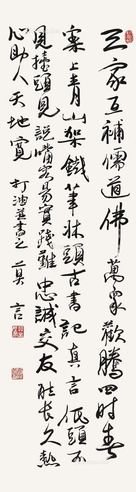 三家互補儒道佛萬家歡騰四时春
案上青山架鐵筆牀頭古書記真言低頭不
見擡頭見説嘴容易實踐難忠誠交友能长久熱
心助人天地寬 打油並書之 真言